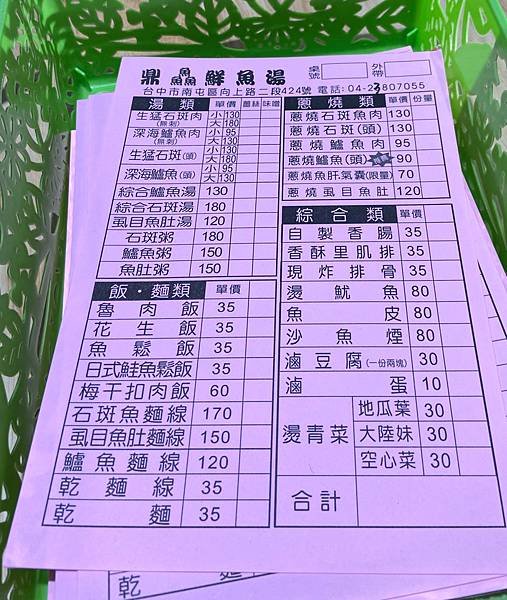 鼎鱻鮮魚湯 桌號 外帶
台中市南屯區向上路二段424號 電話:04-23807055
湯類 單價 薑絲 味噌
生猛石斑肉(無刺) 小130 大180
深海鱸魚肉(無刺) 小95 大130
生猛石斑(頭) 小130 大180
深海鱸魚(頭) 小95 大130
綜合鱸魚湯 130
綜合石斑湯 180
虱目魚肚湯 120
石斑粥 180
鱸魚粥 150
魚肚粥 150
飯・麵類 單價
魯肉飯 35
花生飯 35
魚鬆飯 35
日式鮭魚鬆飯 35
梅干扣肉飯 60
石斑魚麵線 170
虱目魚肚麵線 150
鱸魚麵線 120
乾麵線 35
乾麵 35
蔥燒類 單價 份量
蔥燒石斑魚肉 130
蔥燒石斑(頭) 130
蔥燒鱸魚肉 95
蔥燒鱸魚(頭) 90
蔥燒魚肝.氣囊(限量) 70
蔥燒虱目魚肚 120
綜合類 單價
自製香腸 35
香酥里肌排 35
現炸排骨 35
燙魷魚 80
魚皮 80
沙魚煙 80
滷豆腐(一份兩塊) 30
滷蛋 10
燙青菜
地瓜葉 30
大陸妹 30
空心菜 30
合計
乾